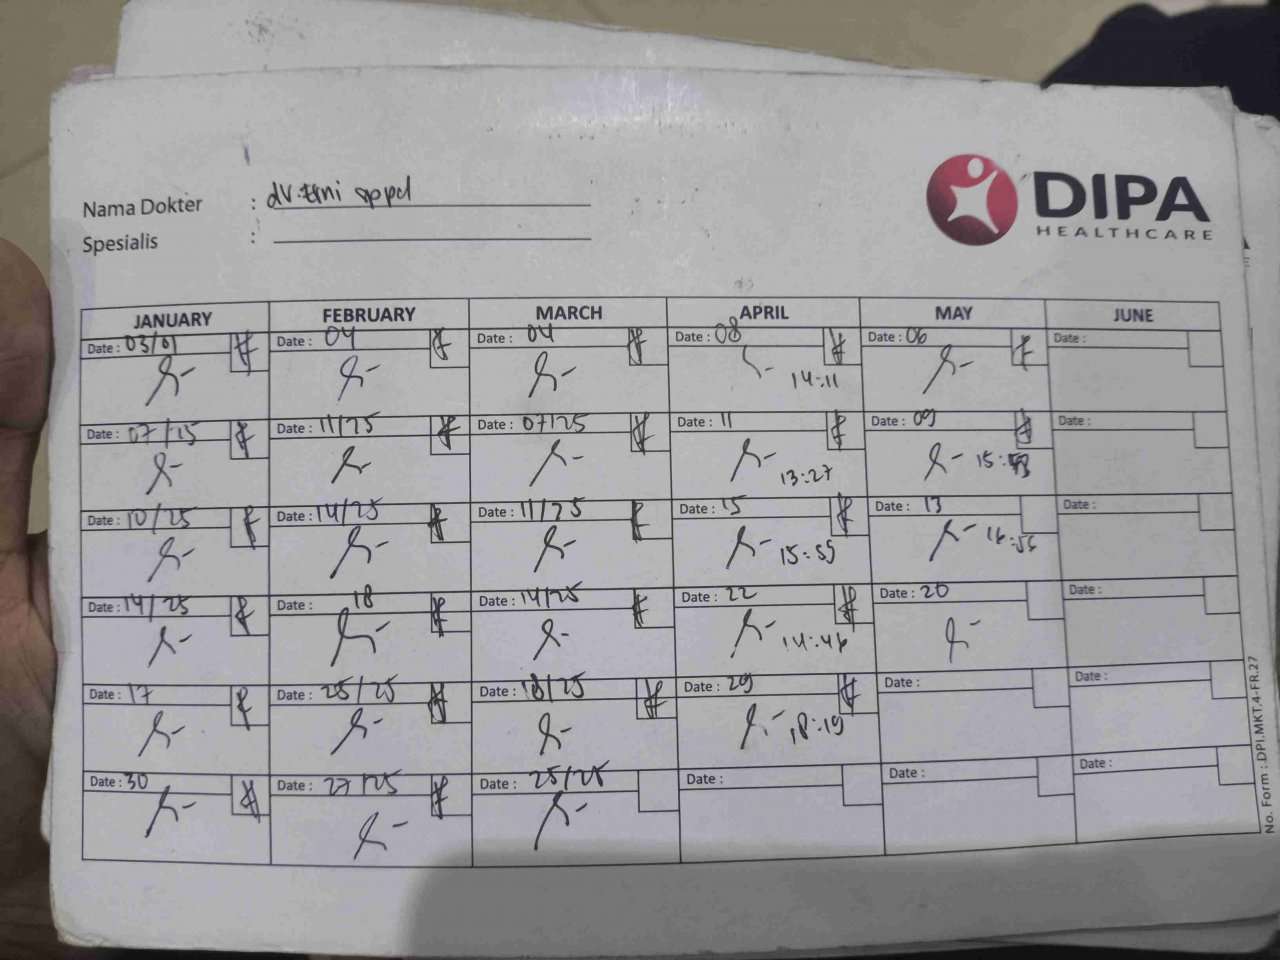 Nama Dokter : dr. Erni sppd
Spesialis :
DIPA
HEALTHCARE
JANUARY FEBRUARY MARCH APRIL MAY JUNE
Date : 03/01 Date : 04 Date : 04 Date : 08 Date : 06 Date :
14:11
Date : 07/15 Date : 11/25 Date : 07/25 Date : 11 Date : 09 Date :
13:27 15:
Date : 10/25 Date : 14/25 Date : 11/25 Date : 15 Date : 13 Date :
15:55 16:55
Date : 14/25 Date : 18 Date : 14/25 Date : 22 Date : 20 Date :
14:46
Date : 17 Date : 25/25 Date : 18/25 Date : 29 Date : Date :
18:19
Date : 30 Date : 27/25 Date : 25/25 Date : Date : Date :
No. Form : DPI.MKT.4-FR.27